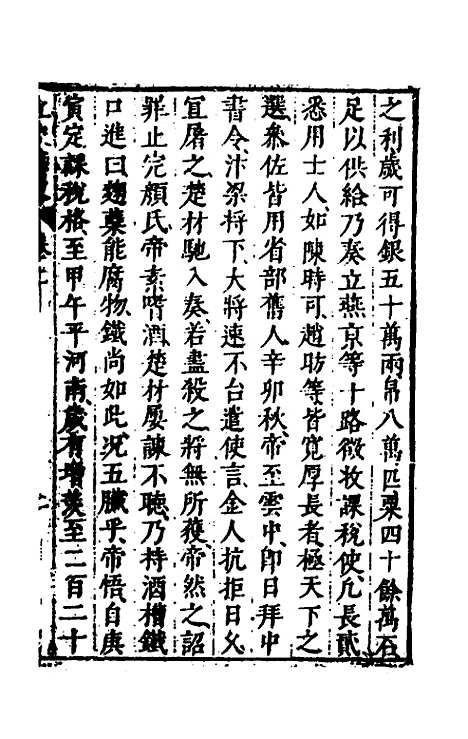 之利歲可得銀五十萬兩帛八萬匹粟四十餘萬石
足以供給乃奏立燕京等十路徵收課稅使凡長貳
悉用士人如陳時可趙昉等皆寬厚長者極天下之
選叅佐皆用省部舊人辛卯秋帝至雲中即日拜中
書令汴梁將下大將速不台遣使言金人抗拒日久
宜屠之楚材馳入奏若盡殺之將無所獲帝然之詔
罪止完顏氏帝素嗜酒楚材屢諫不聽乃持酒槽鐵
口進曰麴蘖能腐物鐵尚如此况五臟乎帝悟自庚
寅定課稅格至甲午平河南歲有增羨至二百二十